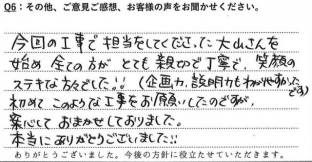 Q6：その他、ご意見ご感想、お客様の声をお聞かせください。
今回の工事で担当をしてくださった大山さんを
始め全ての方がとても親切で丁寧で、笑顔の
ステキな方々でした!!（企画力、説明力もわかりやすかった
です）
初めてこのような工事をお願いしたのですが、
安心しておまかせしておりました。
本当にありがとうございました!!
ありがとうございました。今後の方針に役立たせていただきます。